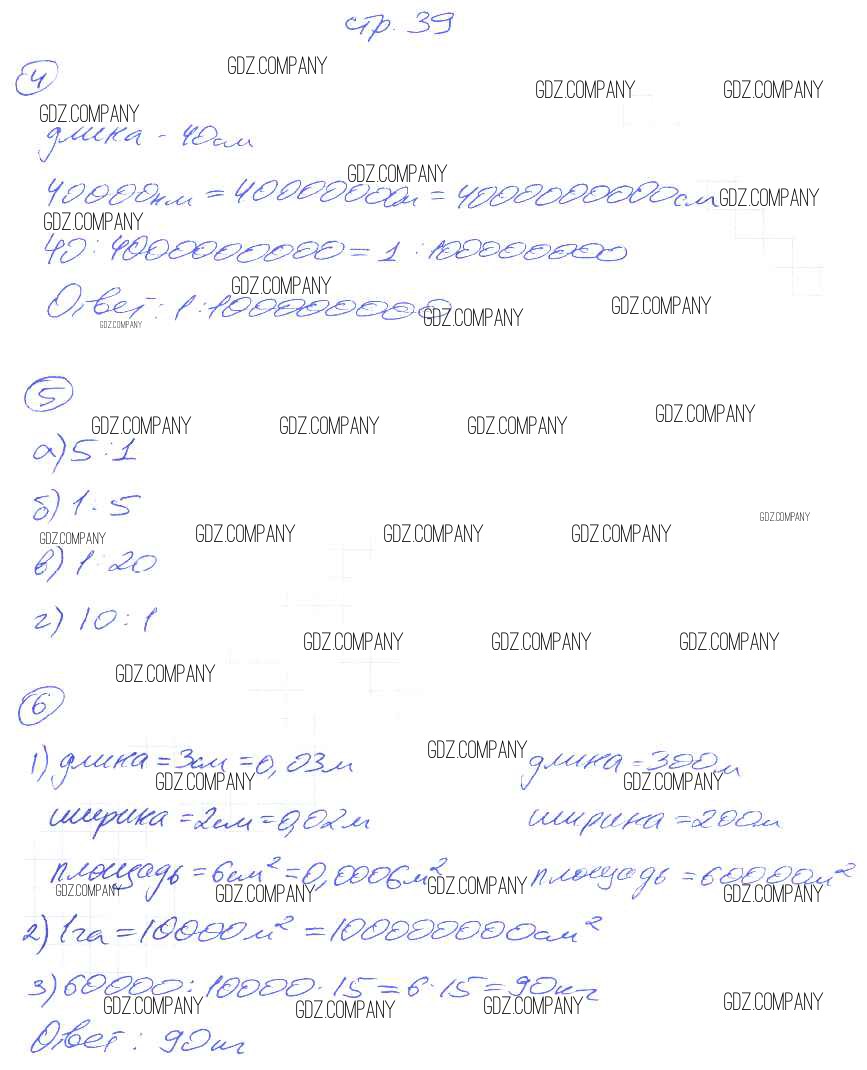 стр. 39
GDZ.COMPANY
4
GDZ.COMPANY GDZ.COMPANY
GDZ.COMPANY
длина - 40см
GDZ.COMPANY
40000км = 40000000м = 4000000000см
GDZ.COMPANY
GDZ.COMPANY
40 : 4000000000 = 1 : 100000000
GDZ.COMPANY
Ответ: 1:100000000
GDZ.COMPANY GDZ.COMPANY
GDZ.COMPANY
5
GDZ.COMPANY GDZ.COMPANY GDZ.COMPANY GDZ.COMPANY
а) 5 : 1
б) 1 : 5
GDZ.COMPANY
GDZ.COMPANY GDZ.COMPANY GDZ.COMPANY GDZ.COMPANY
в) 1 : 20
г) 10 : 1
GDZ.COMPANY GDZ.COMPANY GDZ.COMPANY
GDZ.COMPANY
6
GDZ.COMPANY
1) длина = 3см = 0,03м длина = 300м
GDZ.COMPANY GDZ.COMPANY
ширина = 2см = 0,02м ширина = 200м
площадь = 6см² = 0,0006м² площадь = 60000м²
GDZ.COMPANY GDZ.COMPANY GDZ.COMPANY GDZ.COMPANY
2) 1га = 10000м² = 100000000см²
3) 60000 : 10000 · 15 = 6 · 15 = 90кг
GDZ.COMPANY GDZ.COMPANY GDZ.COMPANY GDZ.COMPANY
Ответ: 90кг